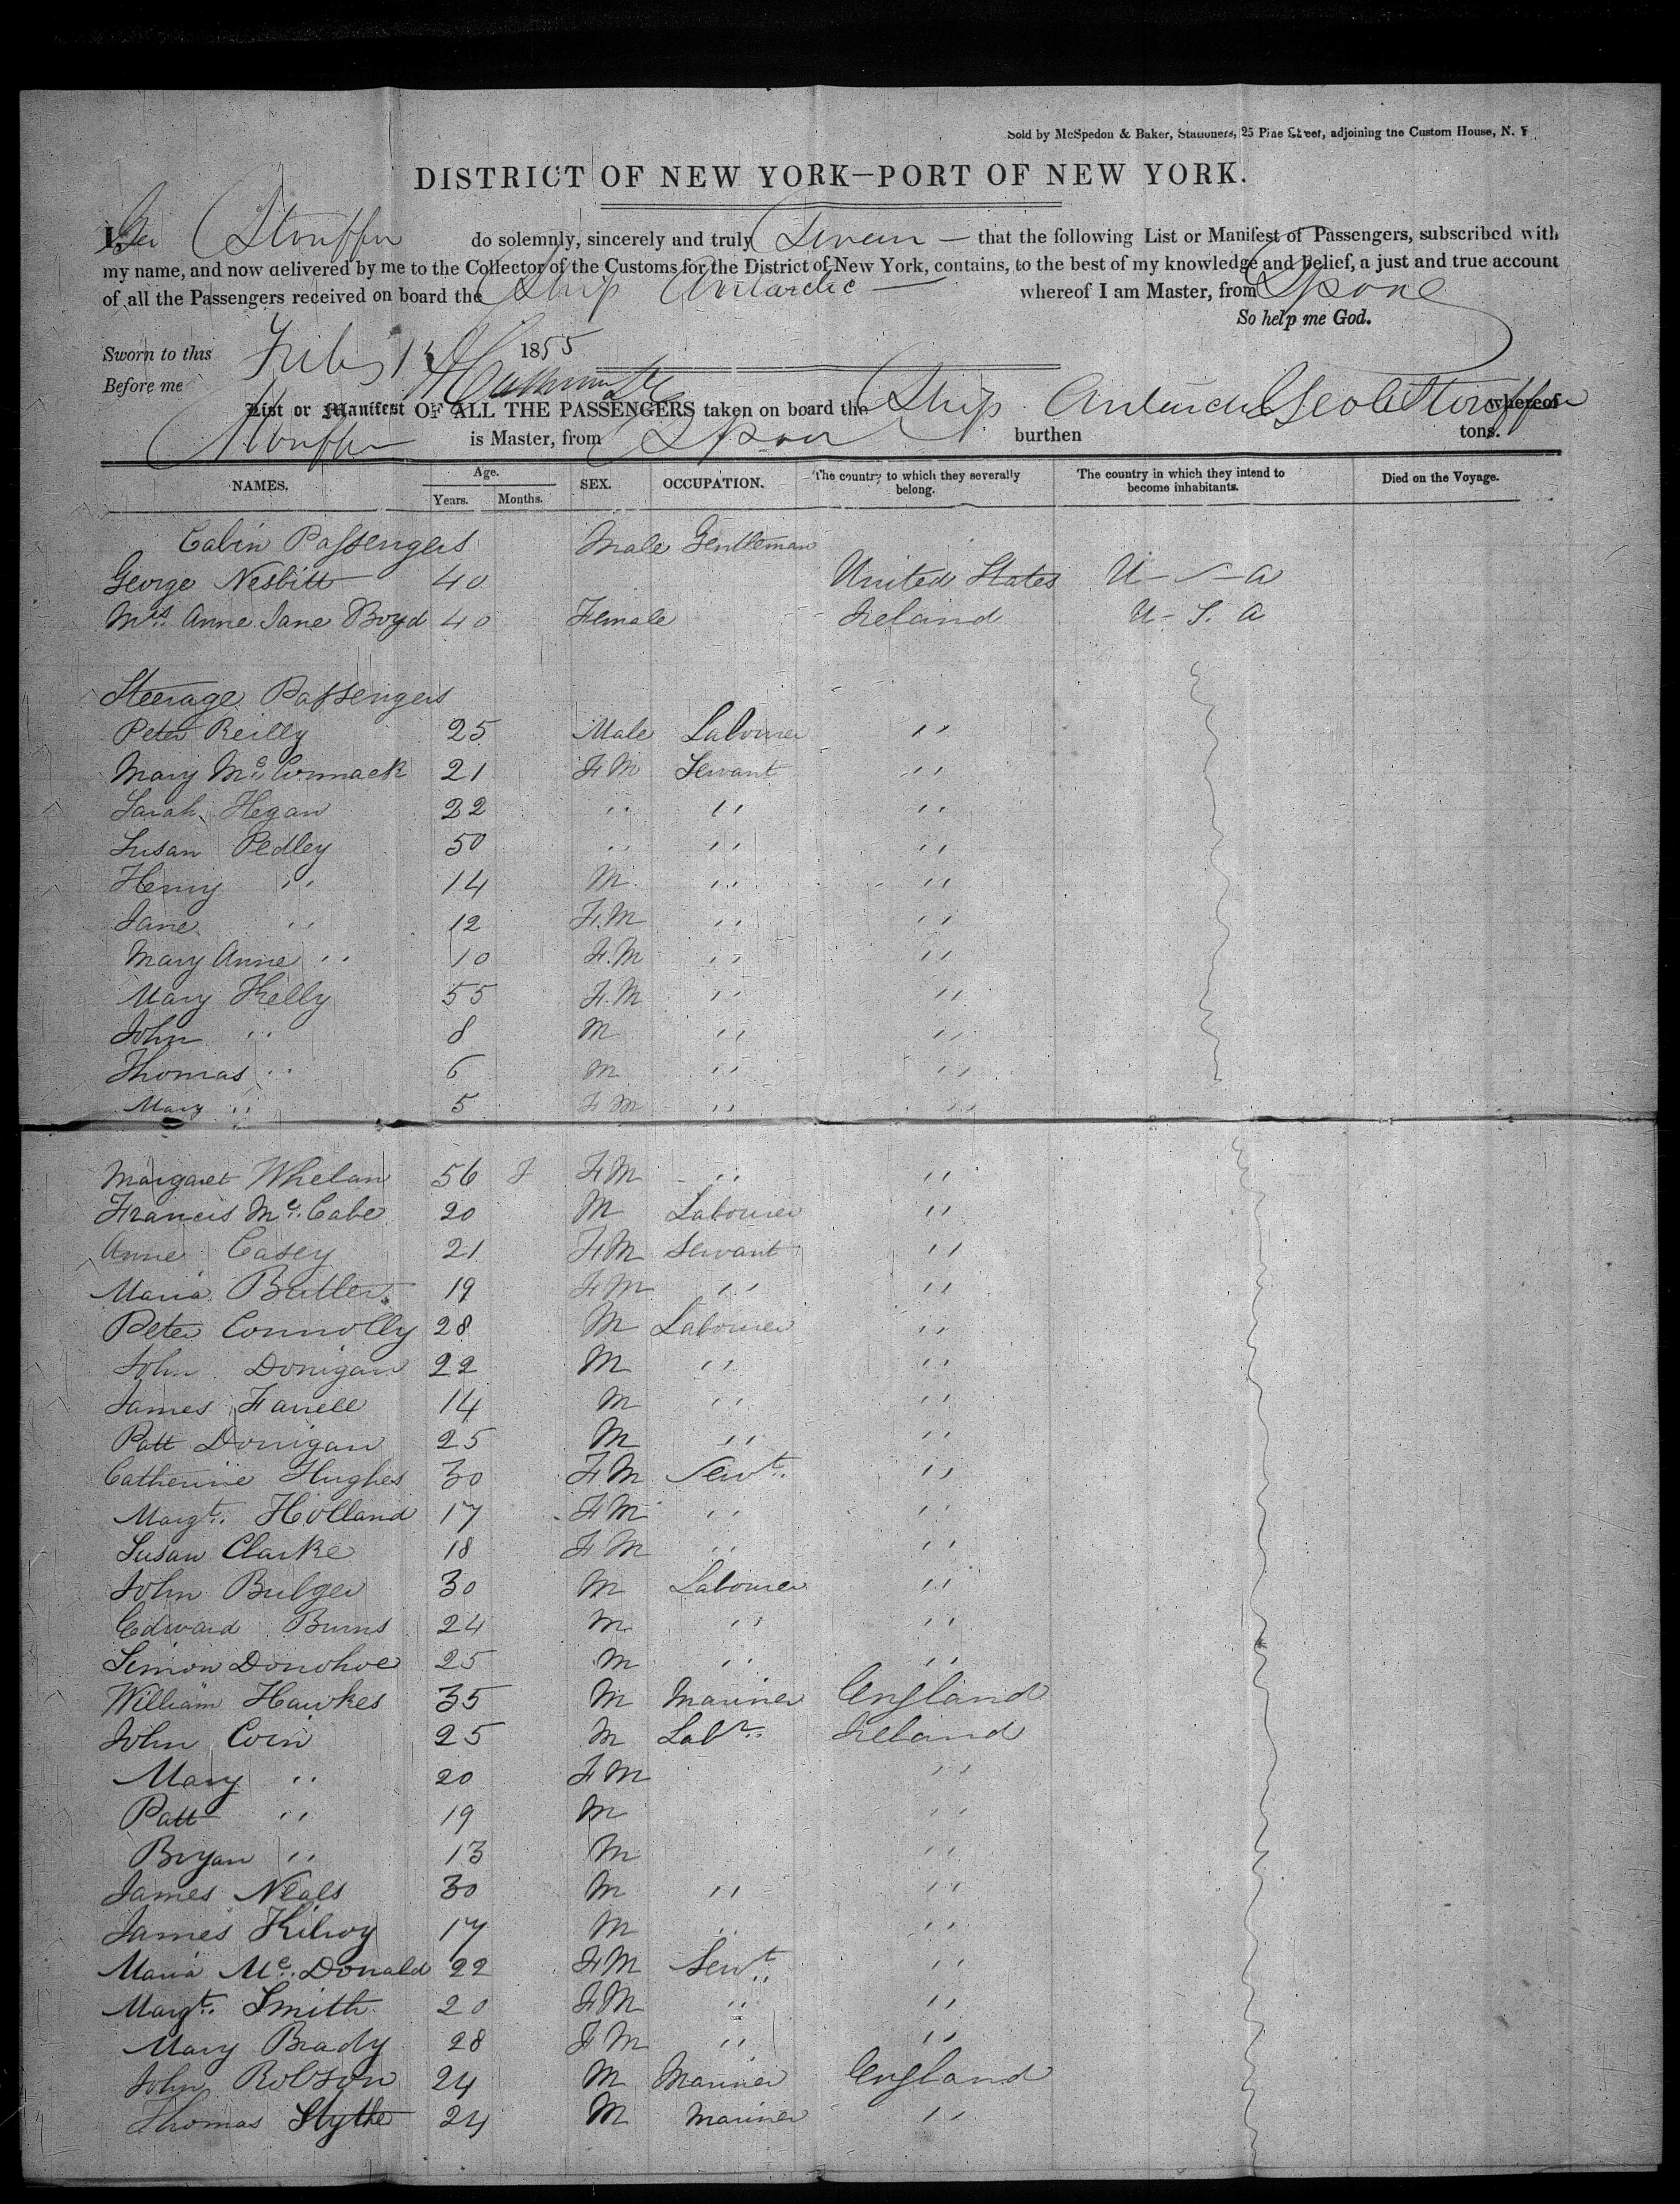 Sold by McSpedon & Baker, Stationers, 25 Pine Street, adjoining the Custom House, N. Y
DISTRICT OF NEW YORK—PORT OF NEW YORK.
I, Geo Stouffer do solemnly, sincerely and truly Swear — that the following List or Manifest of Passengers, subscribed with
my name, and now delivered by me to the Collector of the Customs for the District of New York, contains, to the best of my knowledge and belief, a just and true account
of all the Passengers received on board the Ship Antarctic — whereof I am Master, from
So help me God.
Sworn to this 1855
Before me
List or Manifest OF ALL THE PASSENGERS taken on board the Ship Antarctic Geo Stouffer whereof
Stouffer is Master, from burthen tons.
NAMES. Age. Years. Months. SEX. OCCUPATION. The country to which they severally belong. The country in which they intend to become inhabitants. Died on the Voyage.
Cabin Passengers Male Gentleman
George Nesbitt 40 United States U - S - A
Mrs. Anne Jane Boyd 40 Female Ireland U - S. A
Steerage Passengers
Peter Reilly 25 Male Labourer " 
Mary Mc. Cormack 21 F M Servant "
Sarah Hegan 22 " " "
Susan Pedley 50 " " "
Henry " 14 M " "
Jane " 12 F. M " "
Mary Anne " 10 F. M " "
Mary Kelly 55 F. M " "
John " 8 M " "
Thomas " 6 M " "
Mary " 5 F M " "
Margaret Whelan 56 F F M " "
Francis Mc. Cabe 20 M Labourer "
Anne Casey 21 F M Servant "
Maria Butler 19 F M " "
Peter Connolly 28 M Labourer "
John Donigan 22 M " "
James Farrell 14 M " "
Patt Donigan 25 M " "
Catherine Hughes 30 F M Servt. "
Margt. Holland 17 F M " "
Susan Clarke 18 F M " "
John Bulger 30 M Labourer "
Edward Burns 24 M " "
Simon Donohoe 25 M " "
William Hawkes 35 M Mariner England
John Coin 25 M Labr. Ireland
Mary " 20 F M "
Patt " 19 M "
Bryan " 13 M "
James Neals 30 M " "
James Kilroy 17 M " "
Maria Mc. Donald 22 F M Servt. "
Margt. Smith 20 F M " "
Mary Brady 28 F M " "
John Robson 24 M Mariner England
Thomas Slythe 24 M Mariner "